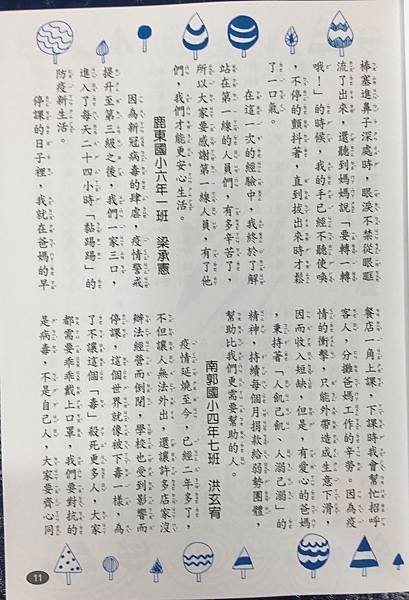 棒塞進鼻子深處時，眼淚不禁從眼眶
流了出來，還聽到媽媽說「要轉一轉
哦！」的時候，我的手已經不聽使喚
，不停的顫抖著，直到拔出來時才鬆
了一口氣。
在這一次的經驗中，我終於了解
站在第一線的人員們，有多辛苦了，
所以大家要感謝第一線人員，有了他
們，我們才能更安心生活。
鹿東國小六年一班 梁承憲
因為新冠病毒的肆虐，疫情警戒
提升至第三級之後，我們一家三口，
進入了每天二十四小時「黏踢踢」的
防疫新生活。
停課的日子裡，我就在爸媽的早
餐店一角上課，下課時我會幫忙招呼
客人，分攤爸媽工作的辛勞。因為疫
情的衝擊，只能外帶造成生意下滑，
因而收入短缺，但是，有愛心的爸媽
，秉持著「人飢己飢、人溺己溺」的
精神，持續每個月捐款給弱勢團體，
幫助比我們更需要幫助的人。
南郭國小四年七班 洪玄宥
疫情延燒至今，已經二年多了，
不但讓人無法外出，還讓許多店家沒
辦法經營而倒閉，學校也受到影響而
停課，這個世界就像被下毒一樣，為
了不讓這個「毒」殺死更多人，大家
都需要乖乖戴上口罩，我們要對抗的
是病毒，不是自己人，大家要齊心同
11